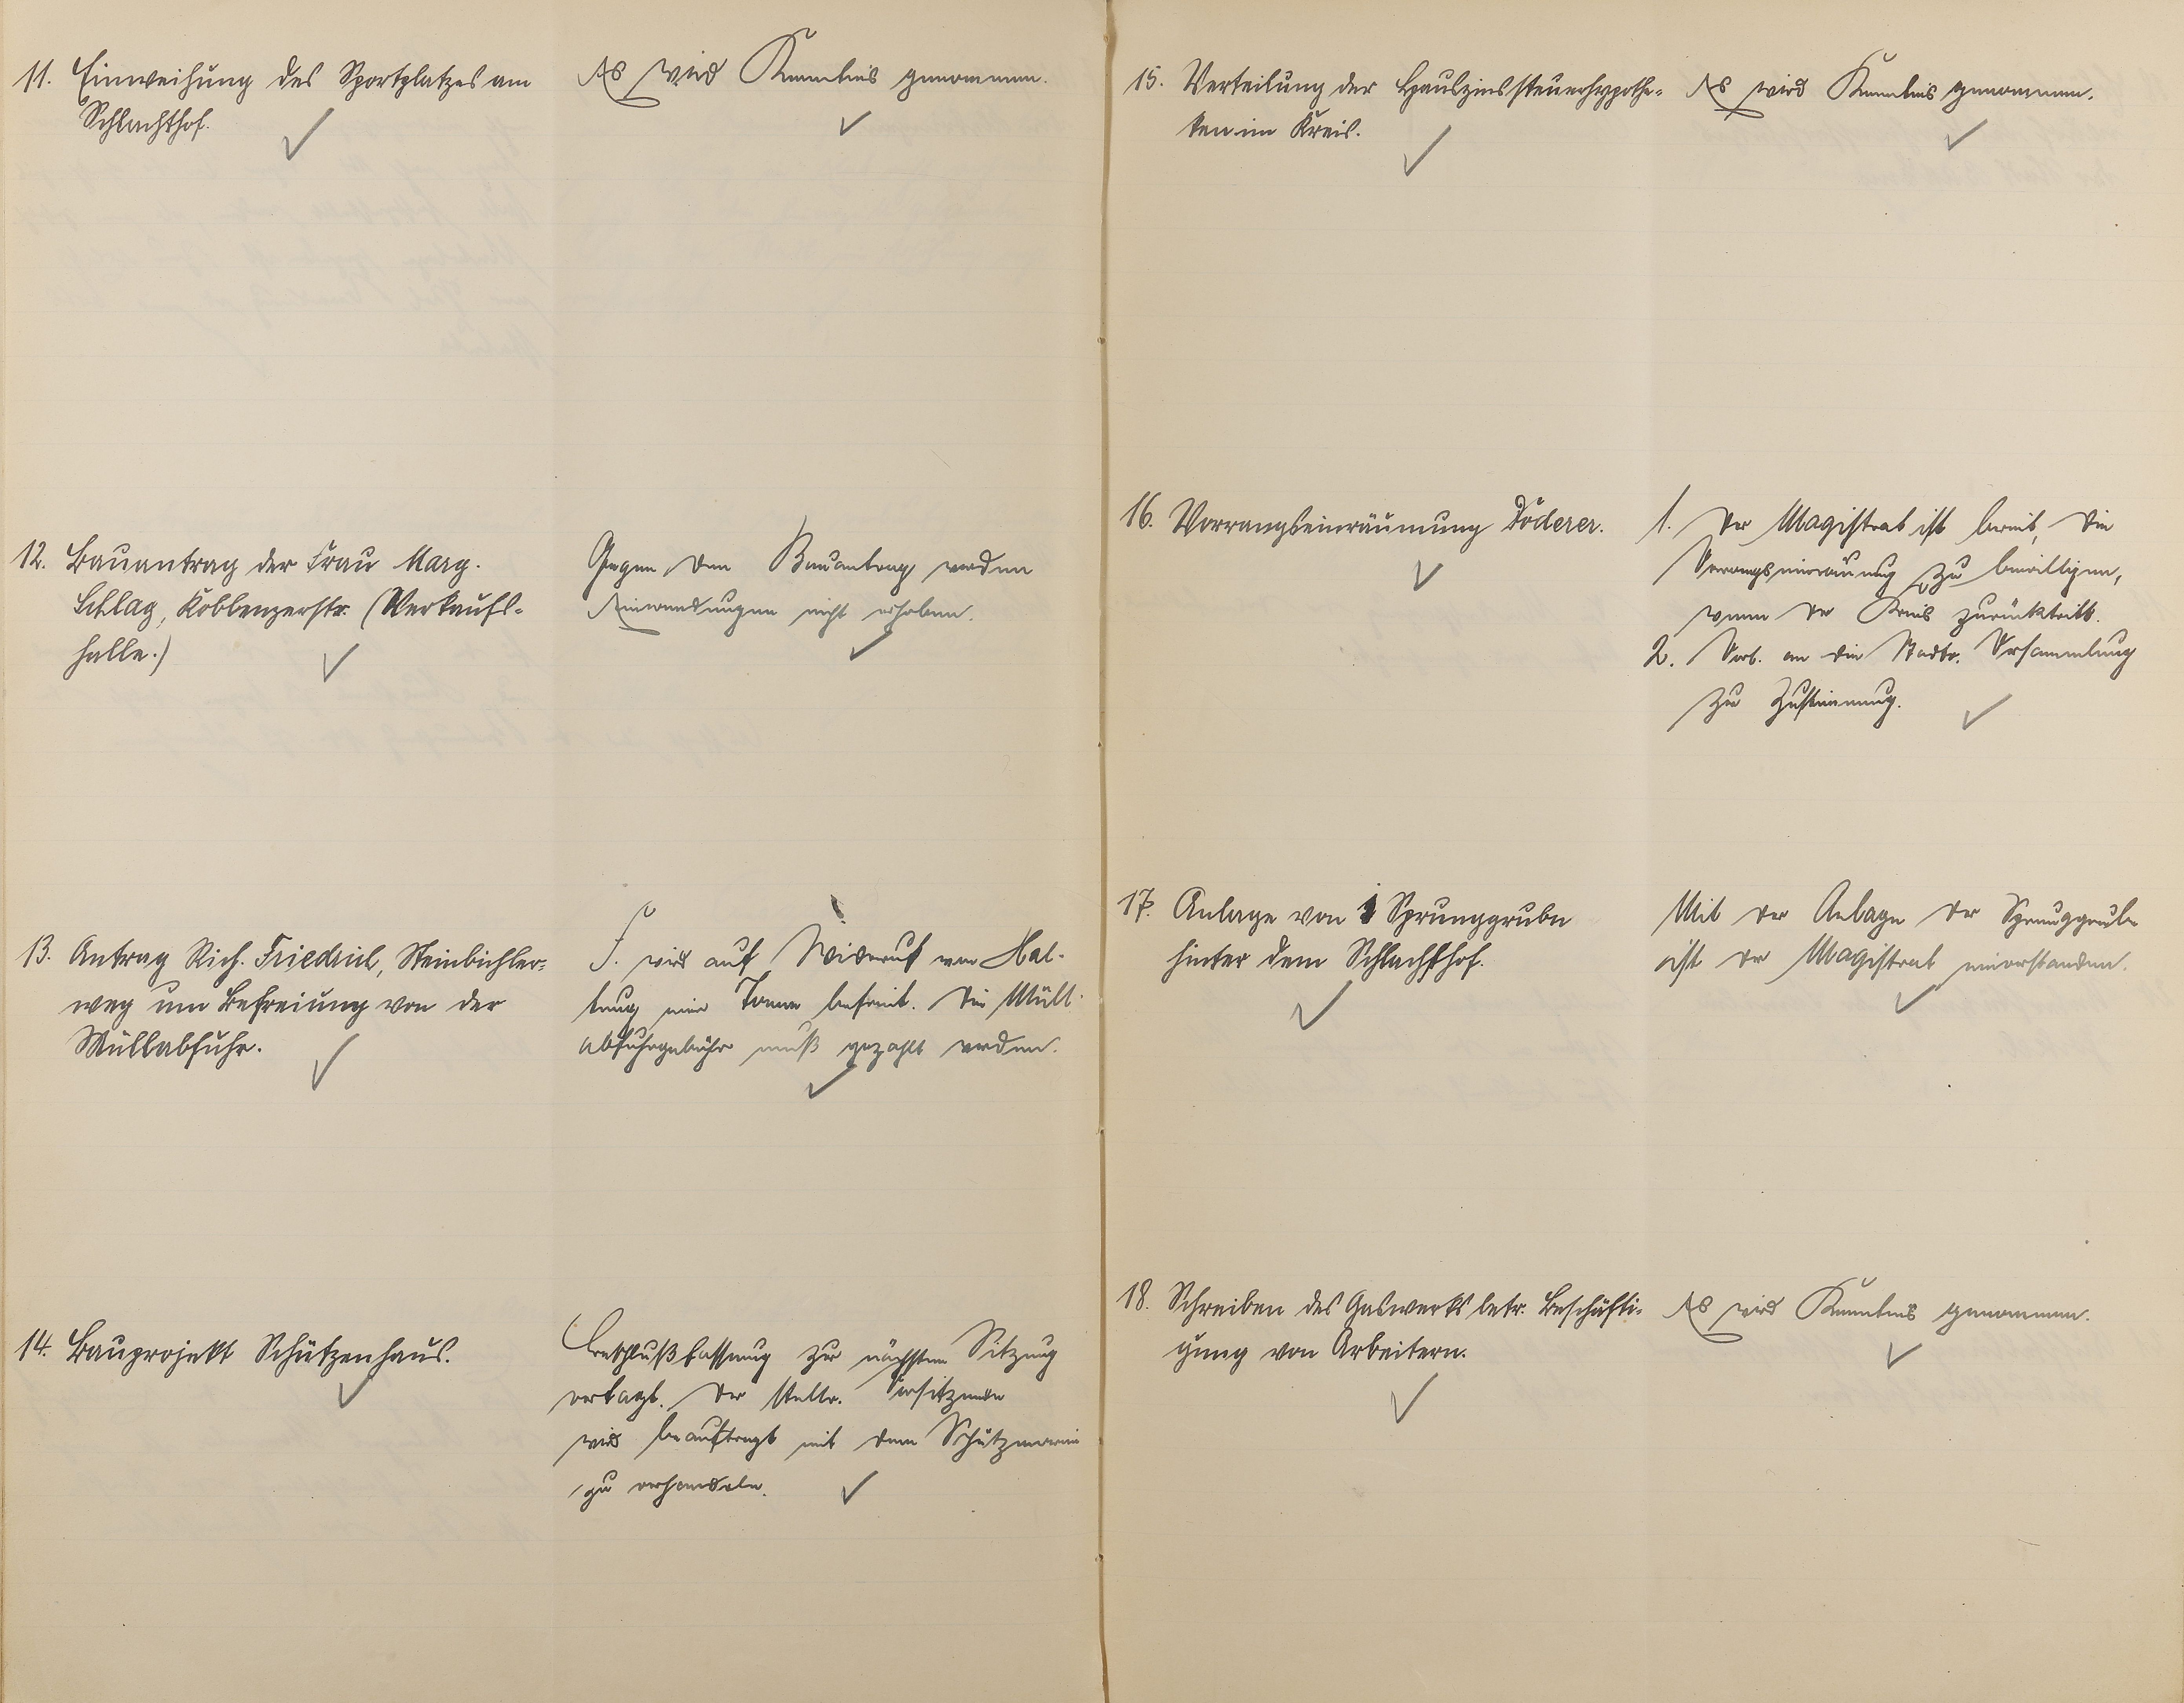 11. Einweihung des Sportplatzes am
Schlachthof.
Es wird Kenntnis genommen.
12. Bauantrag der Frau Marg.
Schlag, Koblenzerstr. (Verkaufs-
halle.)
Gegen den Bauantrag werden
Einwendungen nicht erhoben.
13. Antrag Rich. Friedrich, Steinbichler-
weg um Befreiung von der
Müllabfuhr.
F. wird auf Widerruf von Hal-
tung einer Tonne befreit. Die Müll-
abfuhrgebühr muß gezahlt werden.
14. Bauprojekt Schützenhaus.
Beschlußfassung zur nächsten Sitzung
vertagt. Der stellv. Vorsitzende
wird beauftragt mit dem Schützenverein
zu verhandeln.
15. Verteilung der Hauszinssteuerhypothe-
ken im Kreis.
Es wird Kenntnis genommen.
16. Vorrangseinräumung Döderer.
1. Der Magistrat ist bereit, die
Vorrangseinräumung zu bewilligen,
wenn der Kreis zurücktritt.
2. Vorl. an die Stadtv. Versammlung
zur Zustimmung.
17. Anlage von 1 Sprunggrube
hinter dem Schlachthof.
Mit der Anlage der Sprunggrube
ist der Magistrat einverstanden.
18. Schreiben des Gaswerks betr. Beschäfti-
gung von Arbeitern.
Es wird Kenntnis genommen.